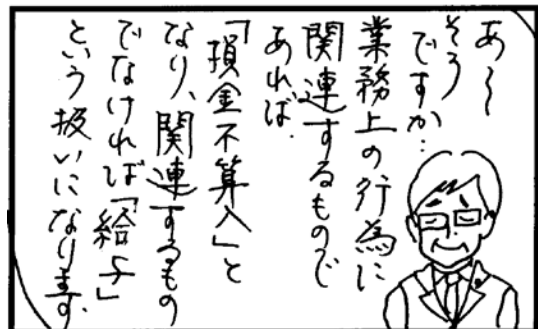 あ～
そう
ですか…
業務上の行為に
関連するもので
あれば、
「損金不算入」と
なり、関連するもの
でなければ「給与」
という扱いになります。